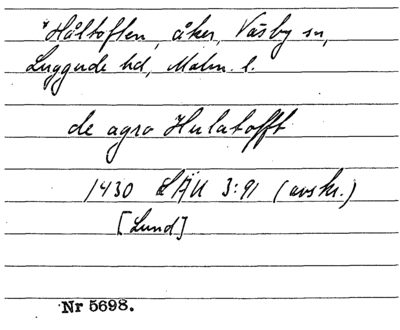 *Håltoften, åker, Väsby sn,
Luggude hd, Malm. l.
de agro Hulatofft
1430 LÄU 3:91 (avskr.)
[Lund]
Nr 5698.